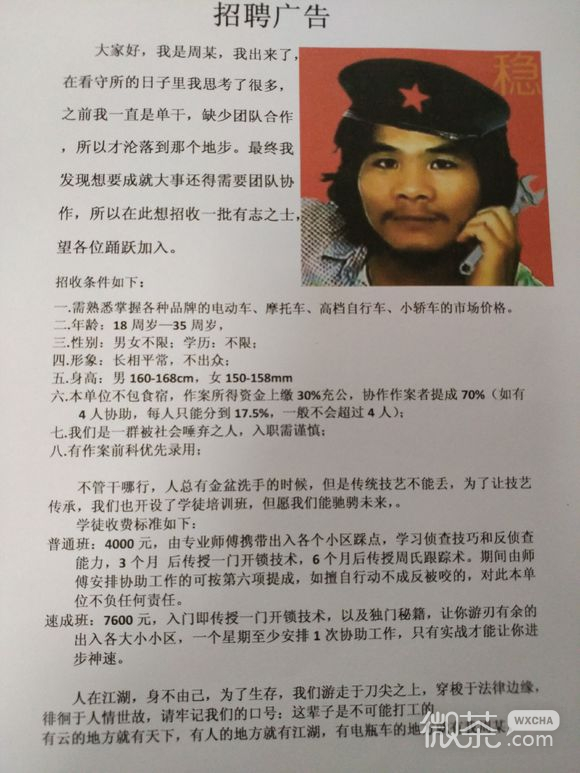 招聘广告
大家好，我是周某，我出来了，
在看守所的日子里我思考了很多，
之前我一直是单干，缺少团队合作
，所以才沦落到那个地步。最终我
发现想要成就大事还得需要团队协
作，所以在此想招收一批有志之士，
望各位踊跃加入。
稳
招收条件如下：
一.需熟悉掌握各种品牌的电动车、摩托车、高档自行车、小轿车的市场价格。
二.年龄：18 周岁—35 周岁，
三.性别：男女不限；学历：不限；
四.形象：长相平常，不出众；
五.身高：男 160-168cm，女 150-158mm
六.本单位不包食宿，作案所得资金上缴 30%充公，协作作案者提成 70%（如有
4 人协助，每人只能分到 17.5%，一般不会超过 4 人）；
七.我们是一群被社会唾弃之人，入职需谨慎；
八.有作案前科优先录用；
不管干哪行，人总有金盆洗手的时候，但是传统技艺不能丢，为了让技艺
传承，我们也开设了学徒培训班，但愿我们能驰骋未来，。
学徒收费标准如下：
普通班：4000 元，由专业师傅携带出入各个小区踩点，学习侦查技巧和反侦查
能力，3 个月 后传授一门开锁技术，6 个月后传授周氏跟踪术。期间由师
傅安排协助工作的可按第六项提成，如擅自行动不成反被咬的，对此本单
位不负任何责任。
速成班：7600 元，入门即传授一门开锁技术，以及独门秘籍，让你游刃有余的
出入各大小小区，一个星期至少安排 1 次协助工作，只有实战才能让你进
步神速。
人在江湖，身不由己，为了生存，我们游走于刀尖之上，穿梭于法律边缘，
徘徊于人情世故，请牢记我们的口号：这辈子是不可能打工的
有云的地方就有天下，有人的地方就有江湖，有电瓶车的地
微茶
WXCHA
.COM